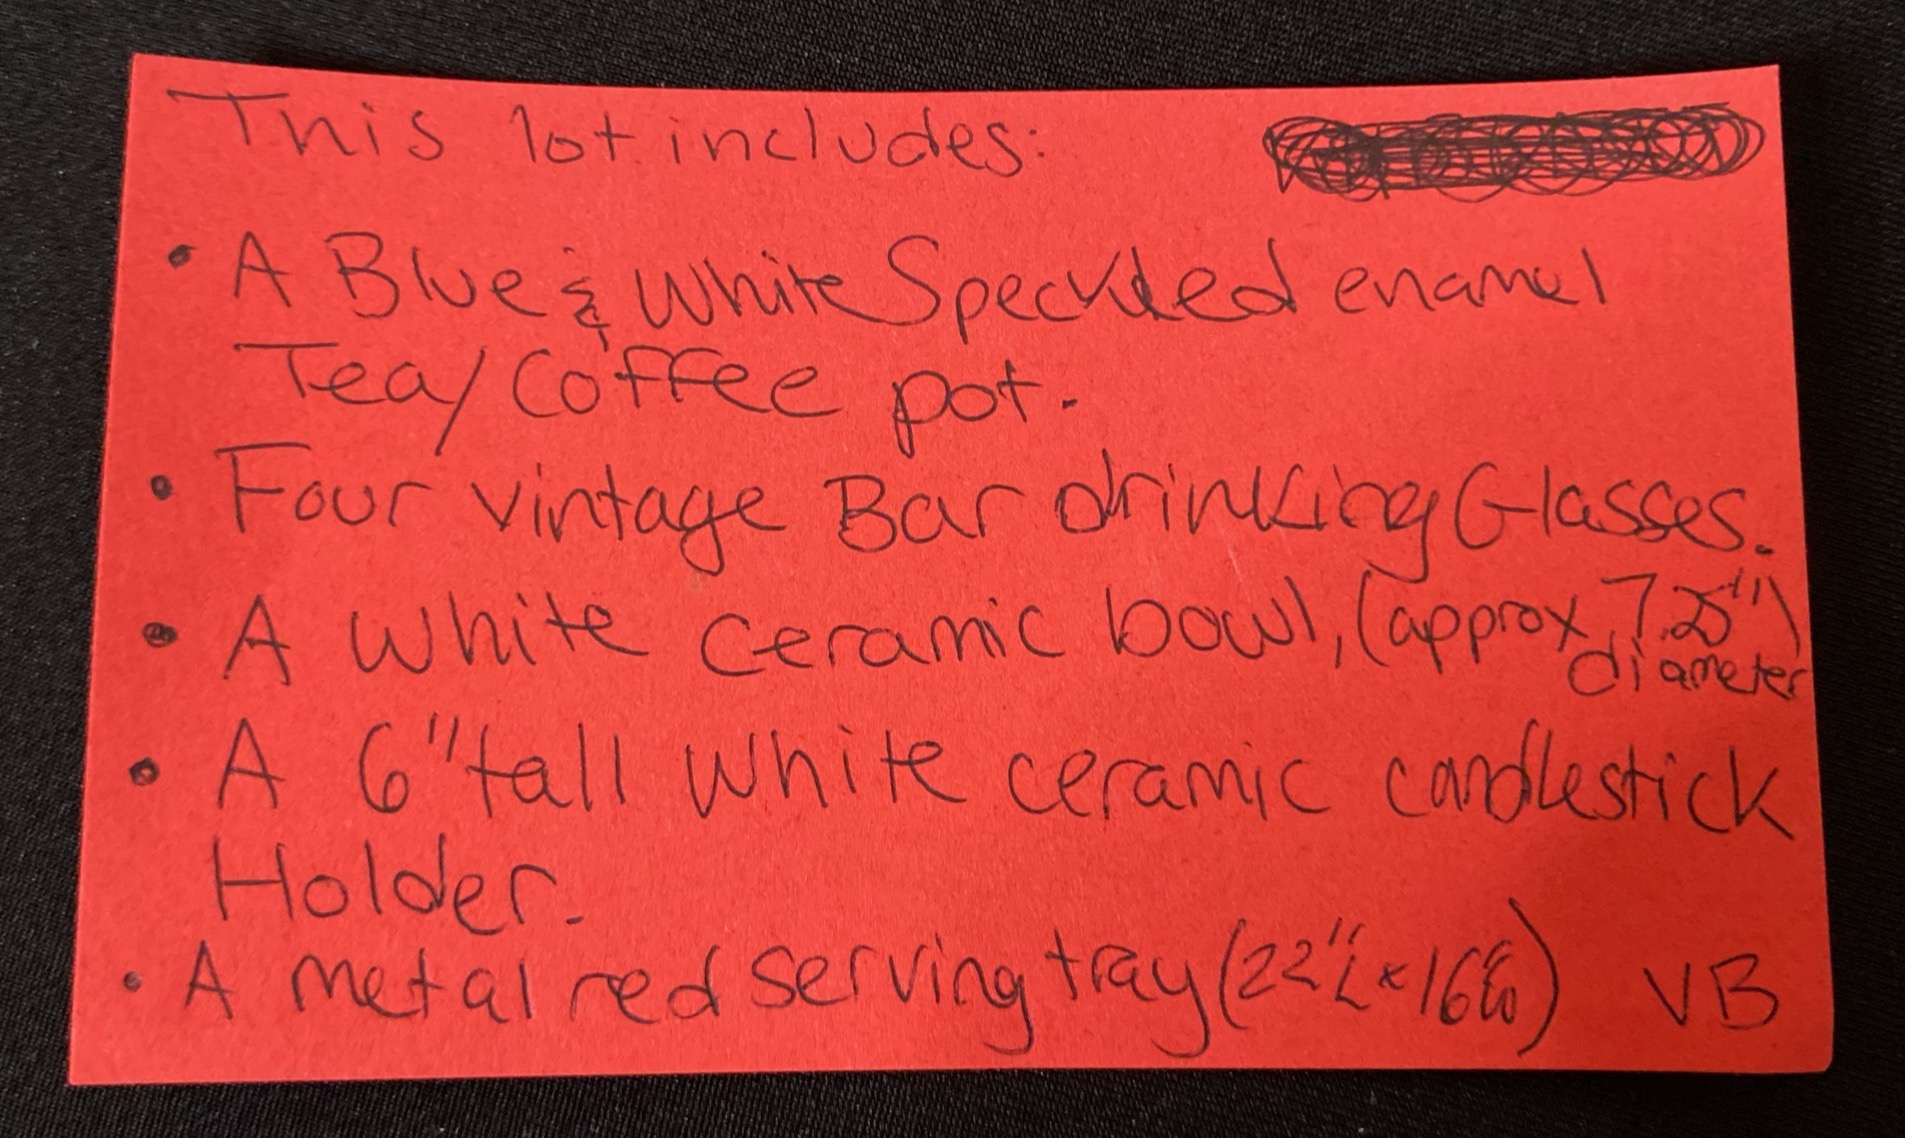 This lot includes:
• A Blue & White Speckled enamel
Tea/Coffee pot.
• Four vintage Bar drinking Glasses.
• A white ceramic bowl, (approx. 7.25")
diameter
• A 6" tall white ceramic candlestick
Holder.
• A metal red serving tray (22"L x 16"W) VB